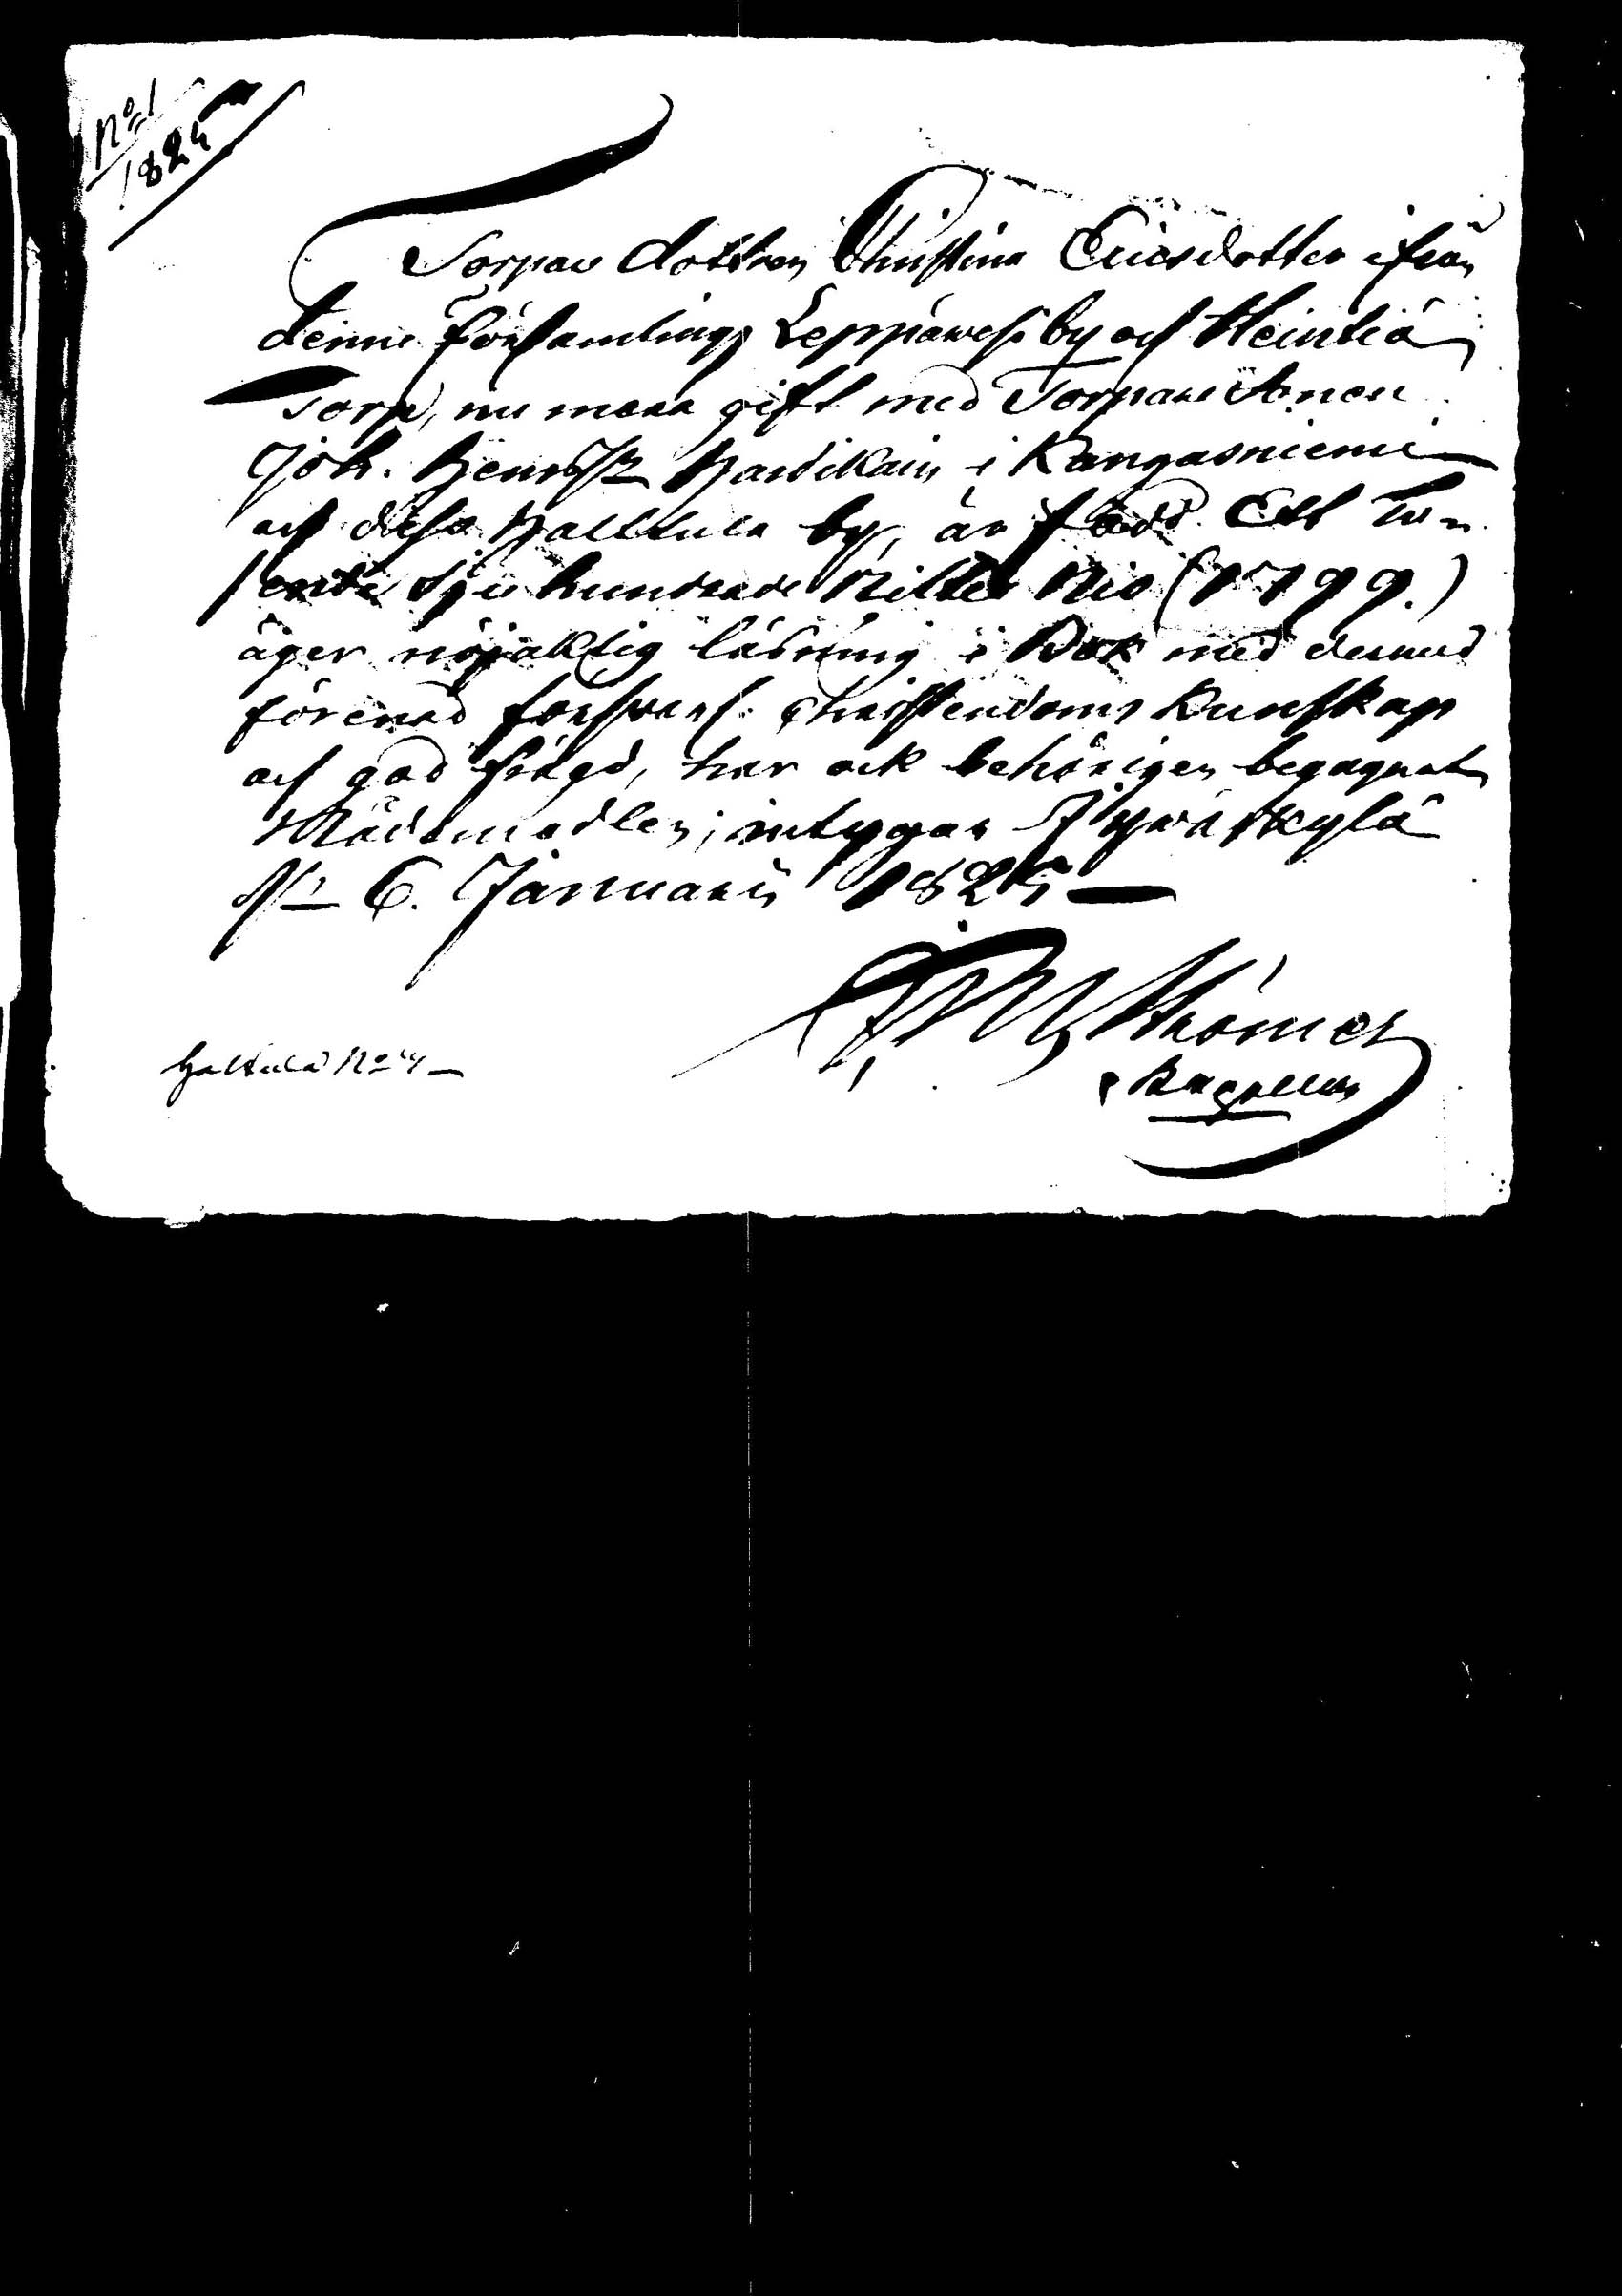 No 1
1825
Torpare dottren Christina Ericsdotter ifrån
denne Församlings Leppäwesi by och Heinliä
Torp, nu mera gift med Torpare Sonen
Joh. Henrikss. Hardikain i Kangasniemi
och dess Halttula by, är född Ett Tu-
sende Sju hundrade Nittio Nio (1799.)
äger nöjaktig läsning i Bok med dermed
förenad forswarl. Christendoms Kunskap
och god frägd, har ock behörigen begagnat
Nådemedlen; intygar Jywäskylä
d. 6. Januarii 1825
Strömer
Kapellan
Haltula No 4